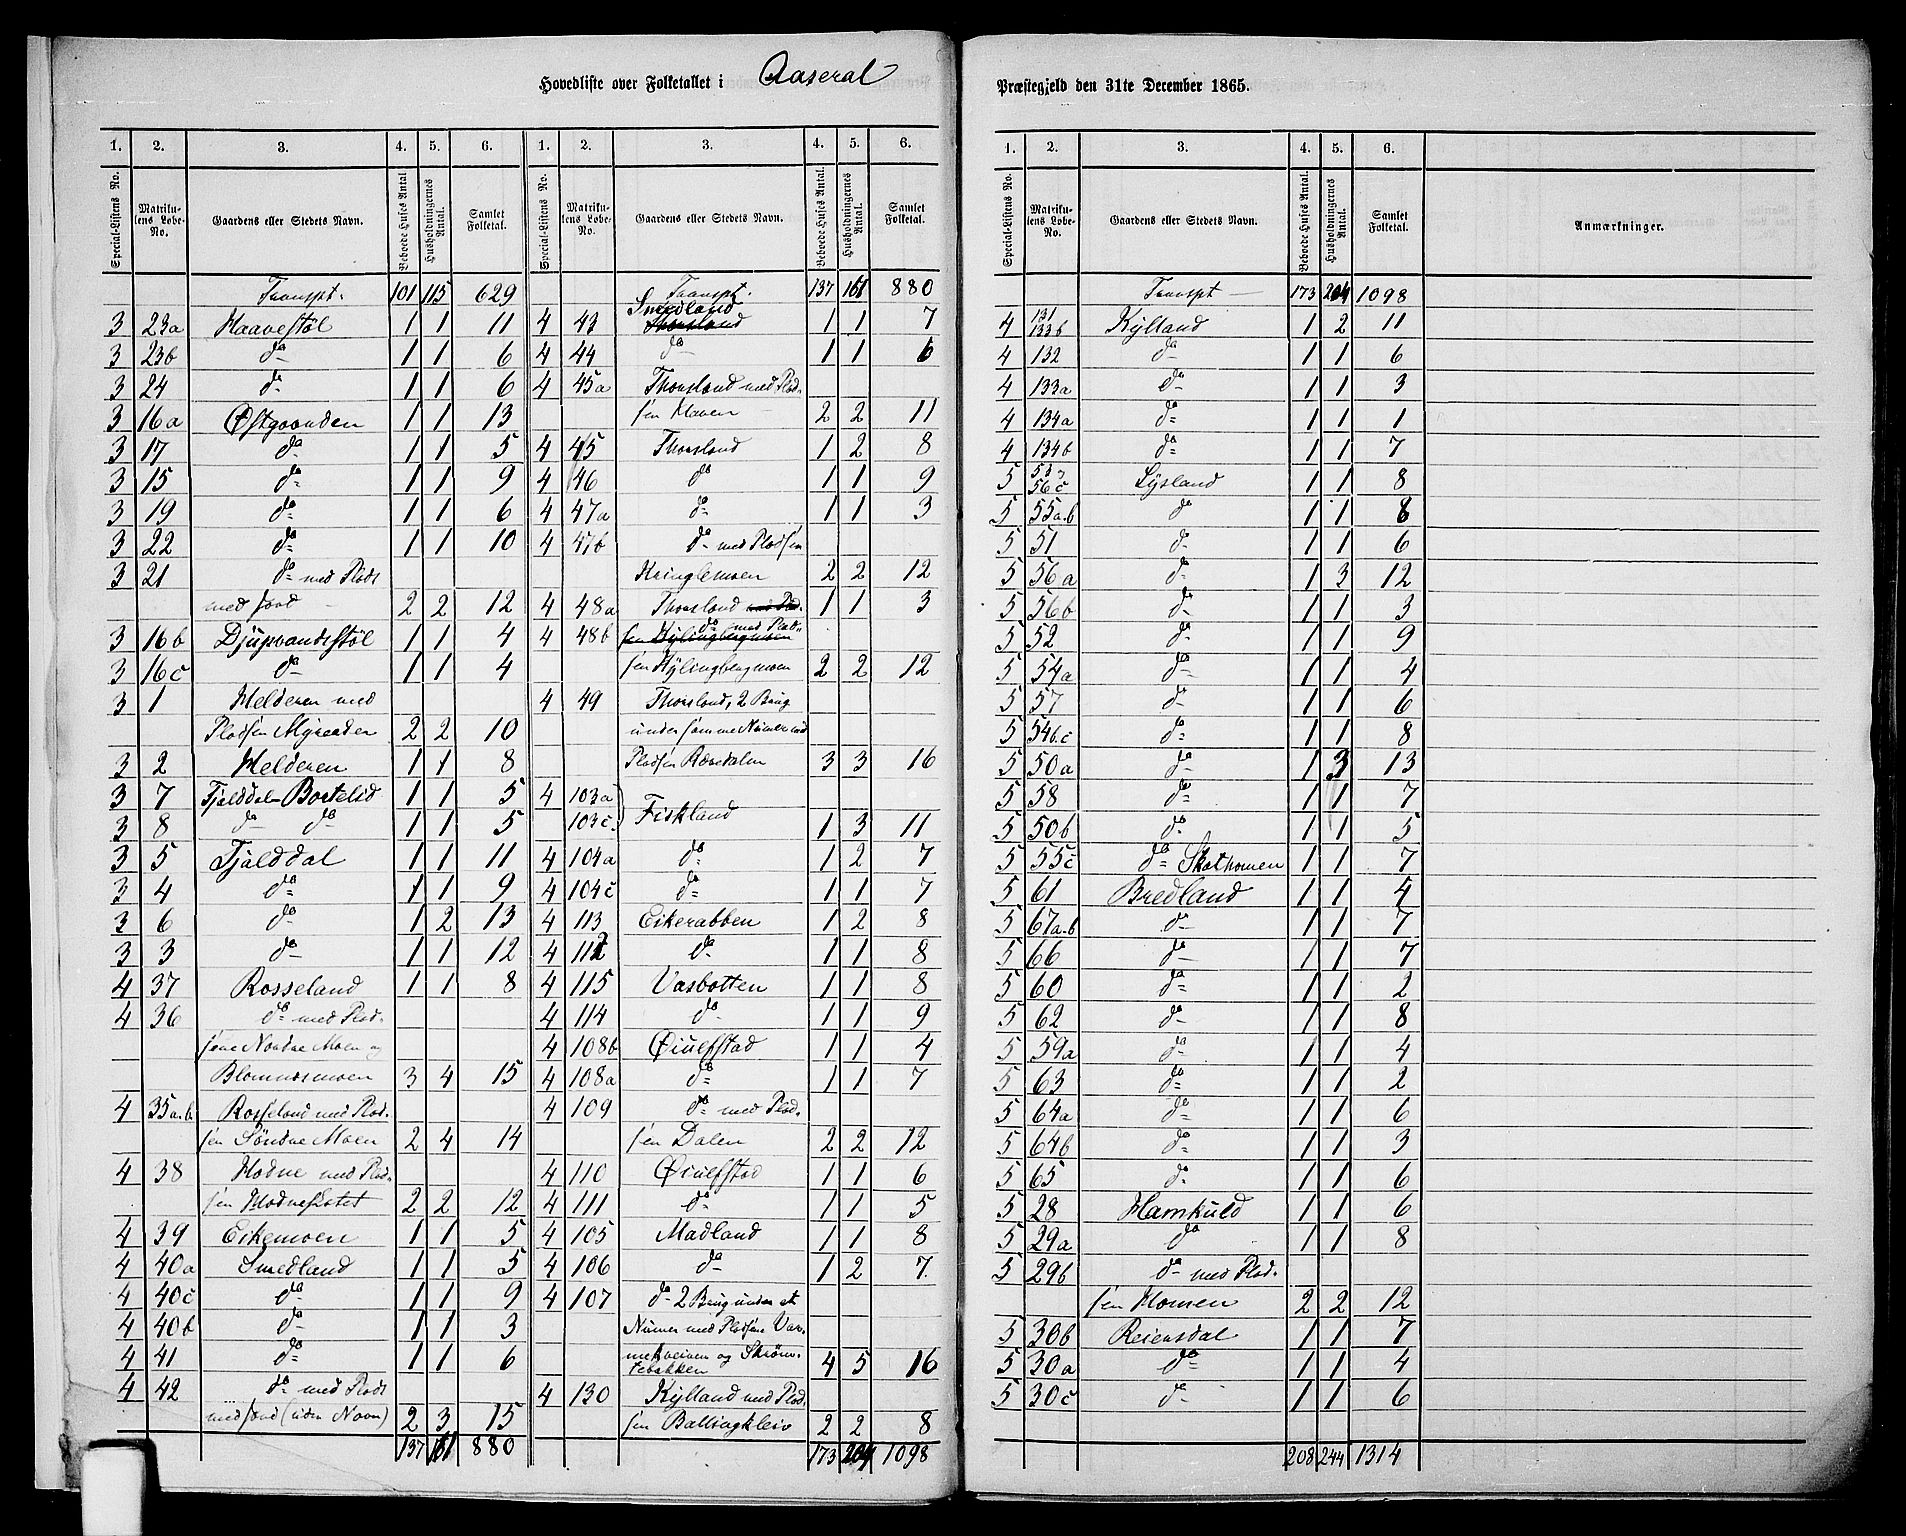 Hovedliste over Folketallet i Aaseral
1. 2. 3. 4. 5. 6. 1. 2. 3. 4. 5. 6.
Special-Listens No. Matrikulens Løbe-No. Gaardens eller Stedets Navn. Beboede Huses Antal Husholdningernes Antal. Samlet Folketal. Special-Listens No. Matrikulens Løbe-No. Gaardens eller Stedets Navn. Beboede Huses Antal. Husholdningernes Antal. Samlet Folketal.
Transpt. 101 115 629
3 23a Haavestøl 1 1 11
3 23b do 1 1 6
3 24 do 1 1 6
3 16a Østgaarden 1 1 13
3 17 do 1 1 5
3 15 do 1 1 9
3 19 do 1 1 6
3 22 do 1 1 10
3 21 do med Plads
med Jord 2 2 12
3 16b Djupvandsstøl 1 1 4
3 16c do 1 1 4
3 1 Helderen med
Pladsen Myreaden 2 2 10
3 2 Helderen 1 1 8
3 7 Tjelddal Bortelid 1 1 5
3 8 do do 1 1 5
3 5 Tjelddal 1 1 11
3 4 do 1 1 9
3 6 do 1 2 13
3 3 do 1 1 12
4 37 Rosseland 1 1 8
4 36 do med Plad-
sene Nordre Moen og
Blomnesmoen 3 4 15
4 35a.b Rosseland med Plad-
sen Søndre Moen 2 4 14
4 38 Hodne med Plad-
sen Hodneslotet 2 2 12
4 39 Eikemoen 1 1 5
4 40a Smedland 1 1 5
4 40c do 1 1 9
4 40b do 1 1 3
4 41 do 1 1 6
4 42 do med Plads
med Jord (uden Navn) 2 3 15
137 161 880
Transpt. 137 161 880
4 43 Smedland Thorsland 1 1 7
4 44 do 1 1 6
4 45a Thorsland med Plad-
sen Haven 2 2 11
4 45 Thorsland 1 2 8
4 46 do 1 1 9
4 47a do 1 1 3
4 47b do med Pladsen
Kringlemoen 2 2 12
4 48a Thorsland med Plad- 1 1 3
4 48b sen Kylingbergmoen do med Plad-
sen Kylingbergmoen 2 2 12
4 49 Thorsland, 2 Brug
under samme Numer med
Pladsen Rævedalen 3 3 16
4 103a
103c. Fiskland 1 3 11
4 104a do 1 2 7
4 104c do 1 1 7
4 113 Eikerabben 1 2 8
4 112 do 1 1 8
4 115 Vasbotten 1 1 8
4 114 do 1 1 9
4 108b Øiulfstad 1 1 4
4 108a do 1 1 7
4 109 do med Plad-
sen Dalen 2 2 12
4 110 Øiulfstad 1 1 6
4 111 do 1 1 5
4 105 Madland 1 1 8
4 106 do 1 2 7
4 107 do 2 Brug under et
Numer med Pladsene Var-
mekveiven og Strøm-
tebakken 4 5 16
4 130 Kylland med Plad-
sen Ballingkleiv 2 2 8
173 204 1098
Præstegjeld den 31te December 1865.
1. 2. 3. 4. 5. 6.
Special-Listens No. Matrikulens Løbe-No. Gaardens eller Stedets Navn. Beboede Huses Antal. Husholdningernes Antal. Samlet Folketal. Anmærkninger.
Transpt 173 204 1098
4 131 133b Kylland 1 2 11
4 132 do 1 1 6
4 133a do 1 1 3
4 134a do 1 1 1
4 134b do 1 1 7
5 53, 56c Lysland 1 1 8
5 55a.b do 1 1 8
5 51 do 1 1 6
5 56a do 1 3 12
5 56b do 1 1 3
5 52 do 1 1 9
5 54a do 1 1 4
5 57 do 1 1 6
5 54b.c do 1 1 8
5 50a do 1 3 13
5 58 do 1 1 7
5 50b do 1 1 5
5 55c do Skathomen 1 1 7
5 61 Bredland 1 1 4
5 67a.b do 1 1 7
5 66 do 1 1 7
5 60 do 1 1 2
5 62 do 1 1 8
5 59a do 1 1 4
5 63 do 1 1 2
5 64a do 1 1 6
5 64b do 1 1 3
5 65 do 1 1 6
5 28 Hamkuld 1 1 6
5 29a do 1 1 8
5 29b do med Plad-
sen Homen 2 2 12
5 30b Reiersdal 1 1 7
5 30a do 1 1 4
5 30c do 1 1 6
208 244 1314